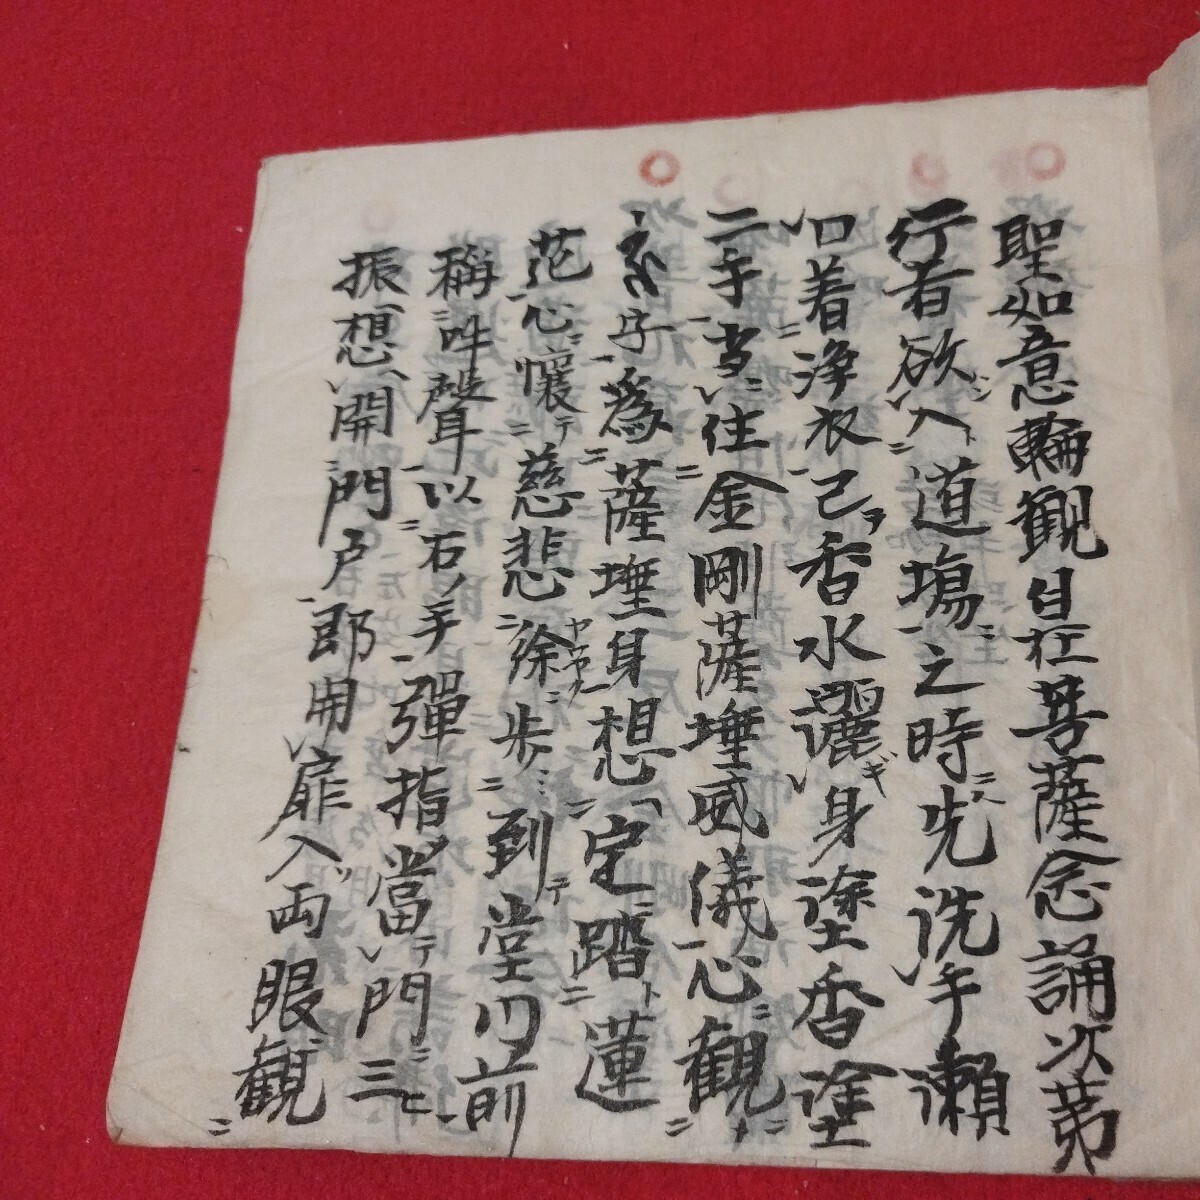 聖如意輪観自在菩薩念誦次第
行者欲入道塲之時先洗手漱
口着浄衣已香水灑身塗香塗
二手当住金剛薩埵威儀心観
字為薩埵身想定踏蓮
花心懐慈悲徐歩到堂門前
稱吽聲以右手彈指當門三
振想開門戸郎開扉入両眼観